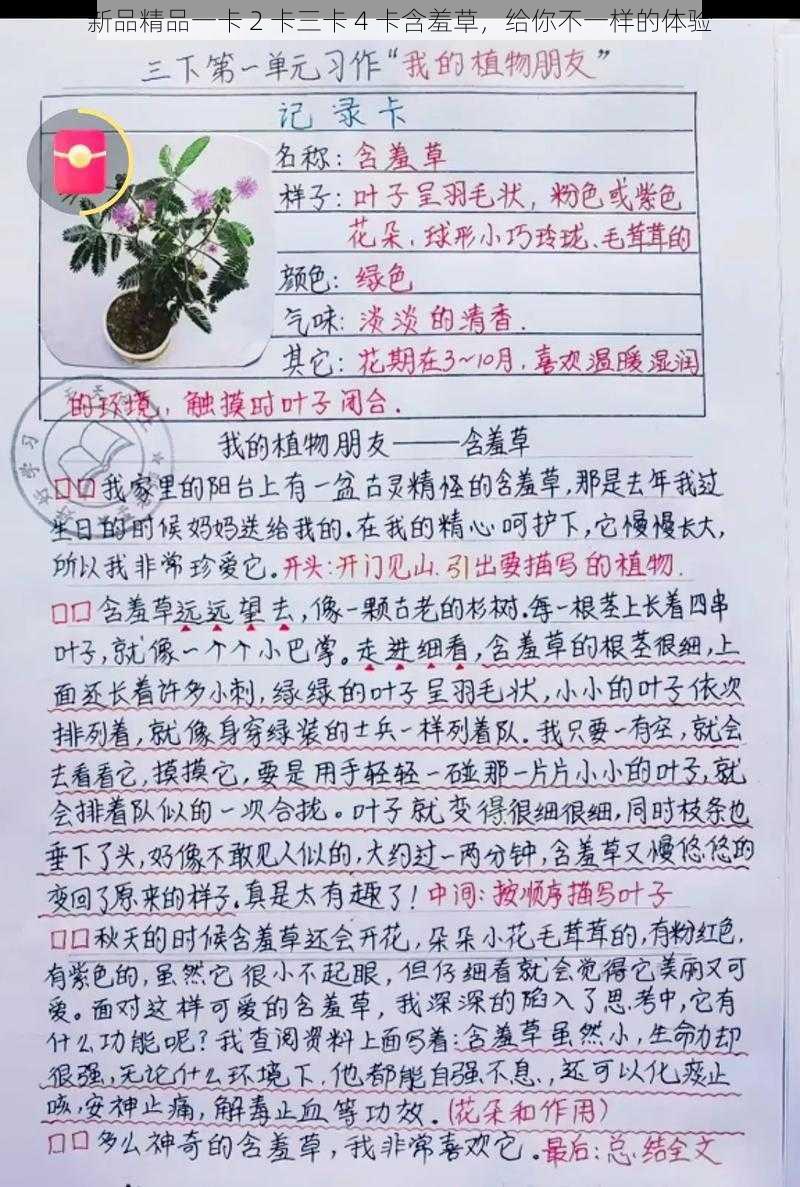 新品精品一卡2卡三卡4卡含羞草，给你不一样的体验
三下第一单元习作“我的植物朋友”
记录卡
名称：含羞草
样子：叶子呈羽毛状，粉色或紫色
花朵，球形小巧玲珑、毛茸茸的
颜色：绿色
气味：淡淡的清香．
其它：花期在3~10月，喜欢温暖湿润
的环境，触摸时叶子闭合．
我的植物朋友——含羞草
□□我家里的阳台上有一盆古灵精怪的含羞草，那是去年我过
生日的时候妈妈送给我的．在我的精心呵护下，它慢慢长大，
所以我非常珍爱它．开头：开门见山．引出要描写的植物．
□□含羞草远远望去，像一颗古老的杉树．每一根茎上长着四串
叶子，就像一个个小巴掌。走进细看，含羞草的根茎很细，上
面还长着许多小刺，绿绿的叶子呈羽毛状，小小的叶子依次
排列着，就像身穿绿装的士兵一样列着队．我只要一有空，就会
去看看它，摸摸它，要是用手轻轻一碰那一片片小小的叶子，就
会排着队似的一次合拢。叶子就变得很细很细，同时枝条也
垂下了头，好像不敢见人似的，大约过一两分钟，含羞草又慢悠悠的
变回了原来的样子．真是太有趣了！中间：按顺序描写叶子
□□秋天的时候含羞草还会开花，朵朵小花毛茸茸的，有粉红色，
有紫色的，虽然它很小不起眼，但仔细看就会觉得它美丽又可
爱。面对这样可爱的含羞草，我深深的陷入了思考中，它有
什么功能呢？我查阅资料上面写着：含羞草虽然小，生命力却
很强，无论什么环境下，他都能自强不息，还可以化痰止
咳，安神止痛，解毒止血等功效．（花朵和作用）
□□多么神奇的含羞草，我非常喜欢它．最后：总结全文